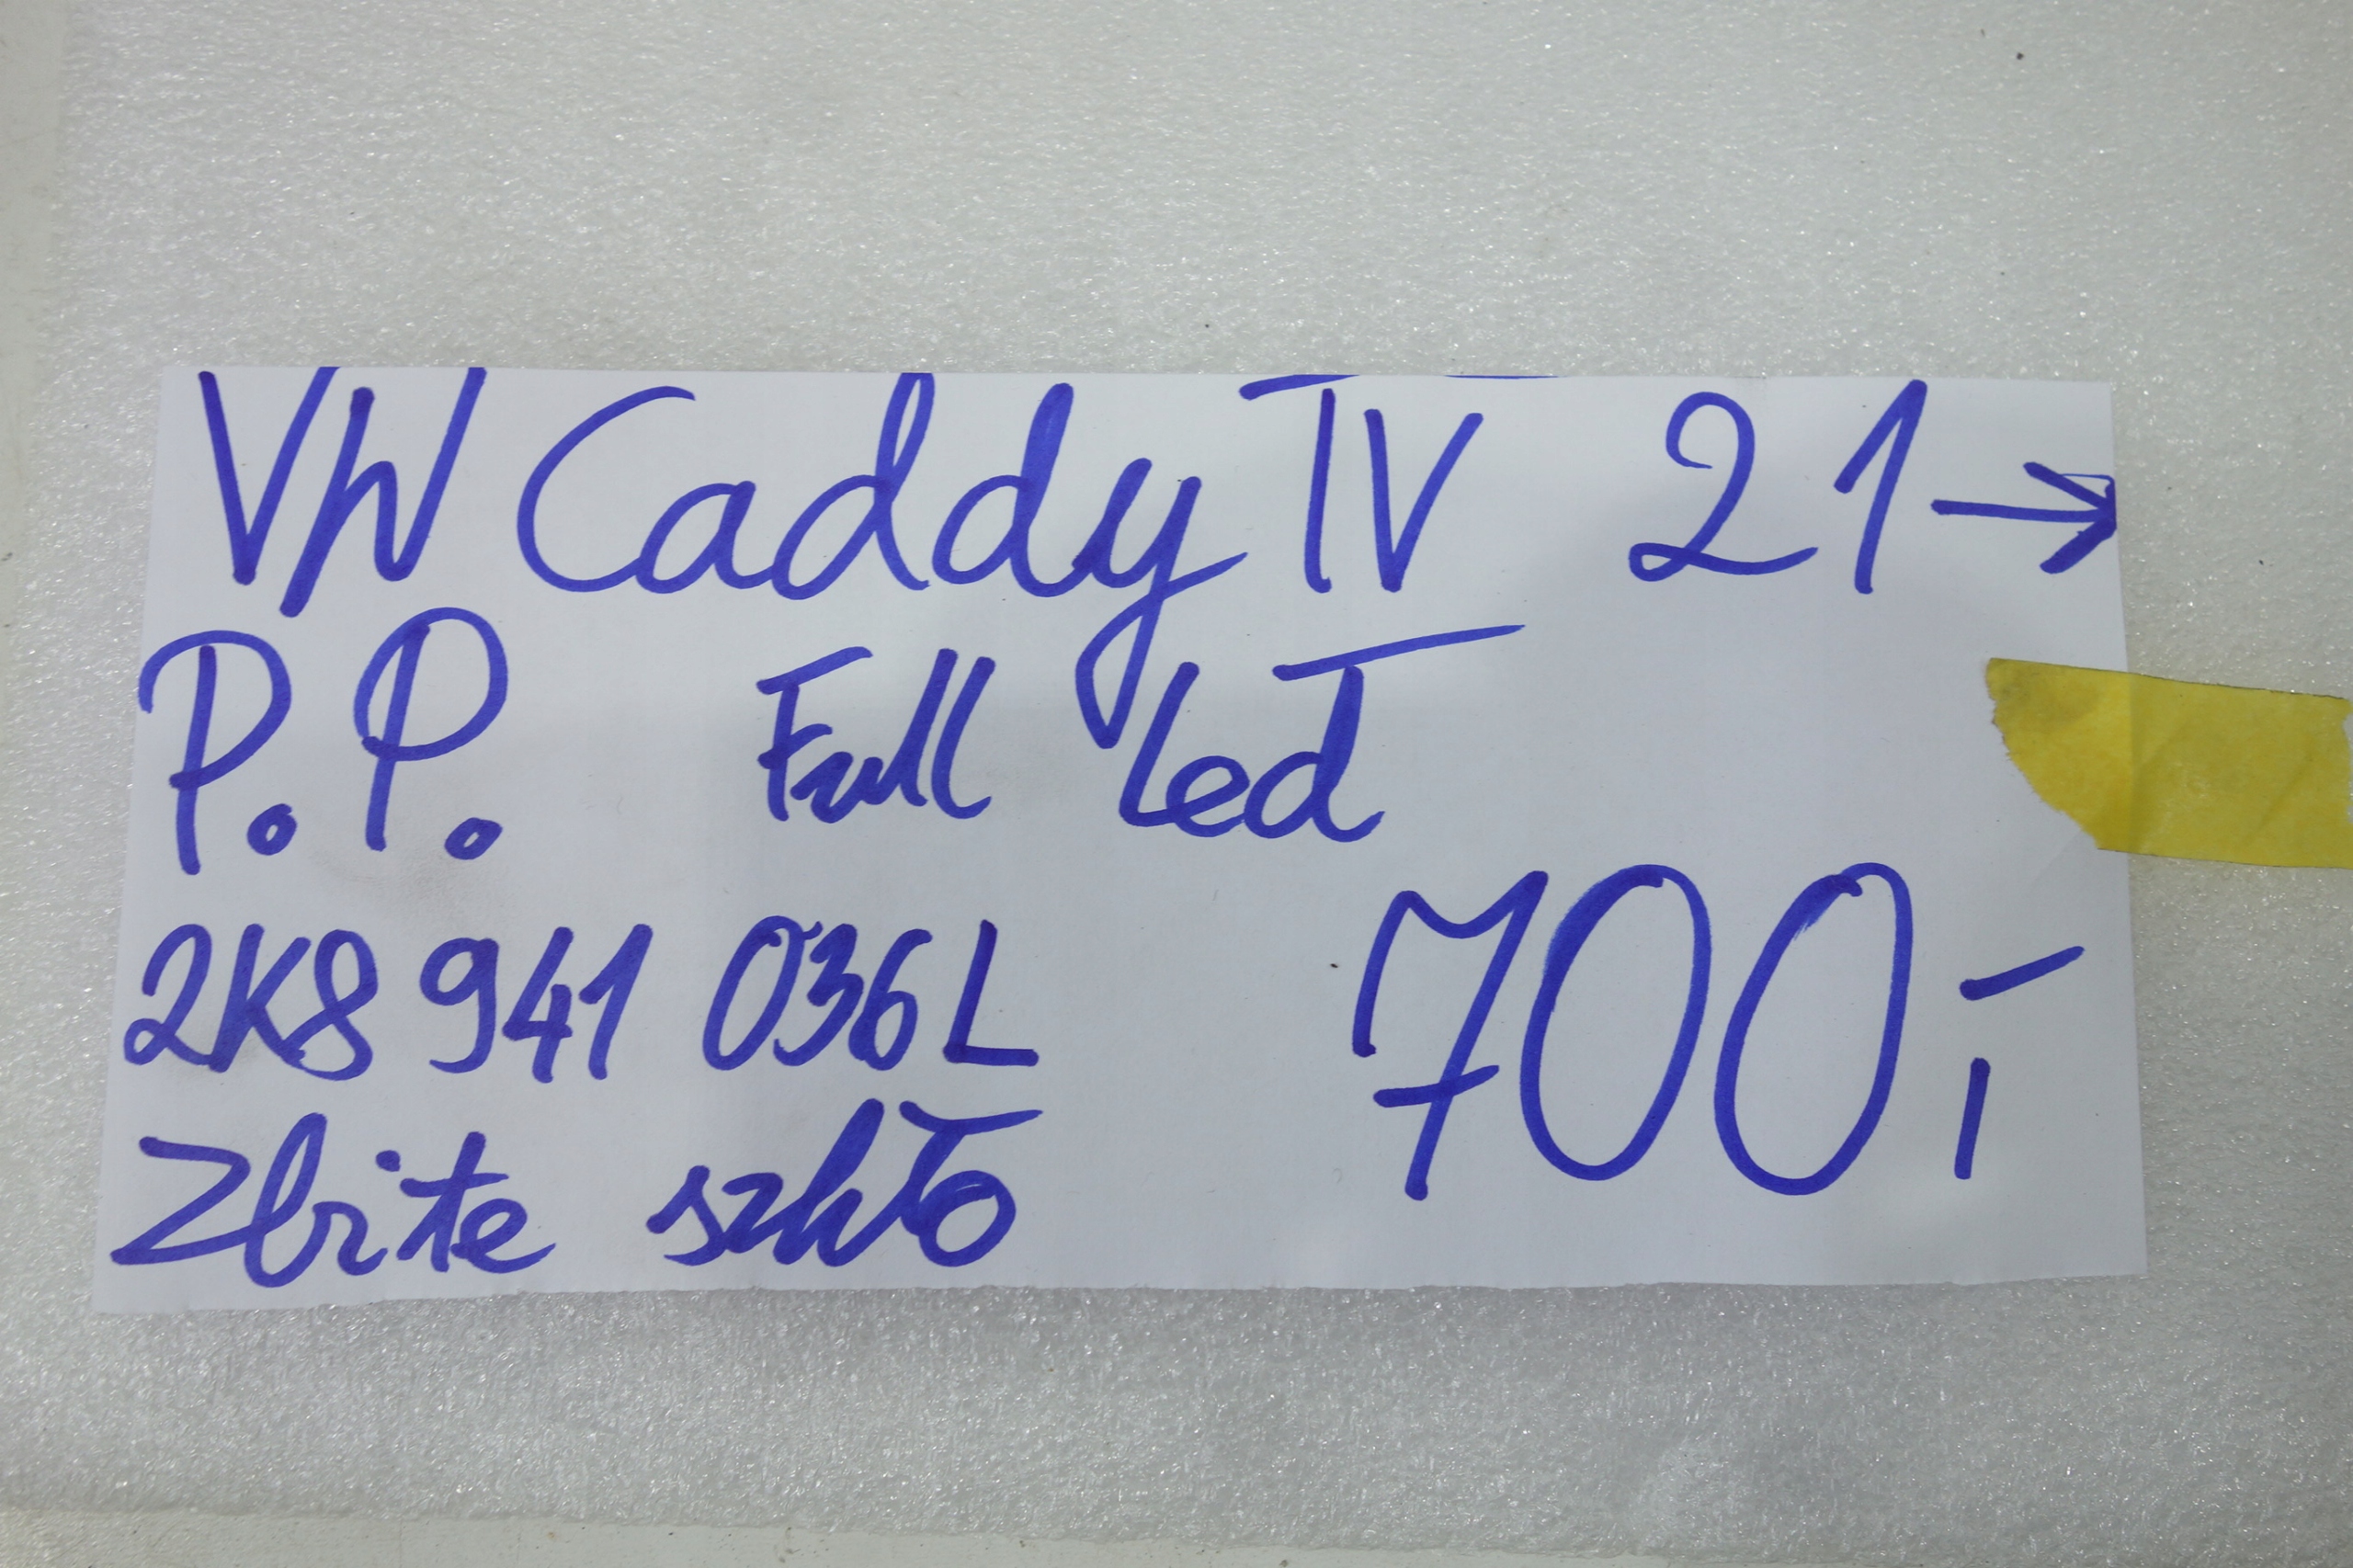 VW Caddy IV 21→
P.P. Full Led
2K8 941 036L 700,-
Zbite szkło